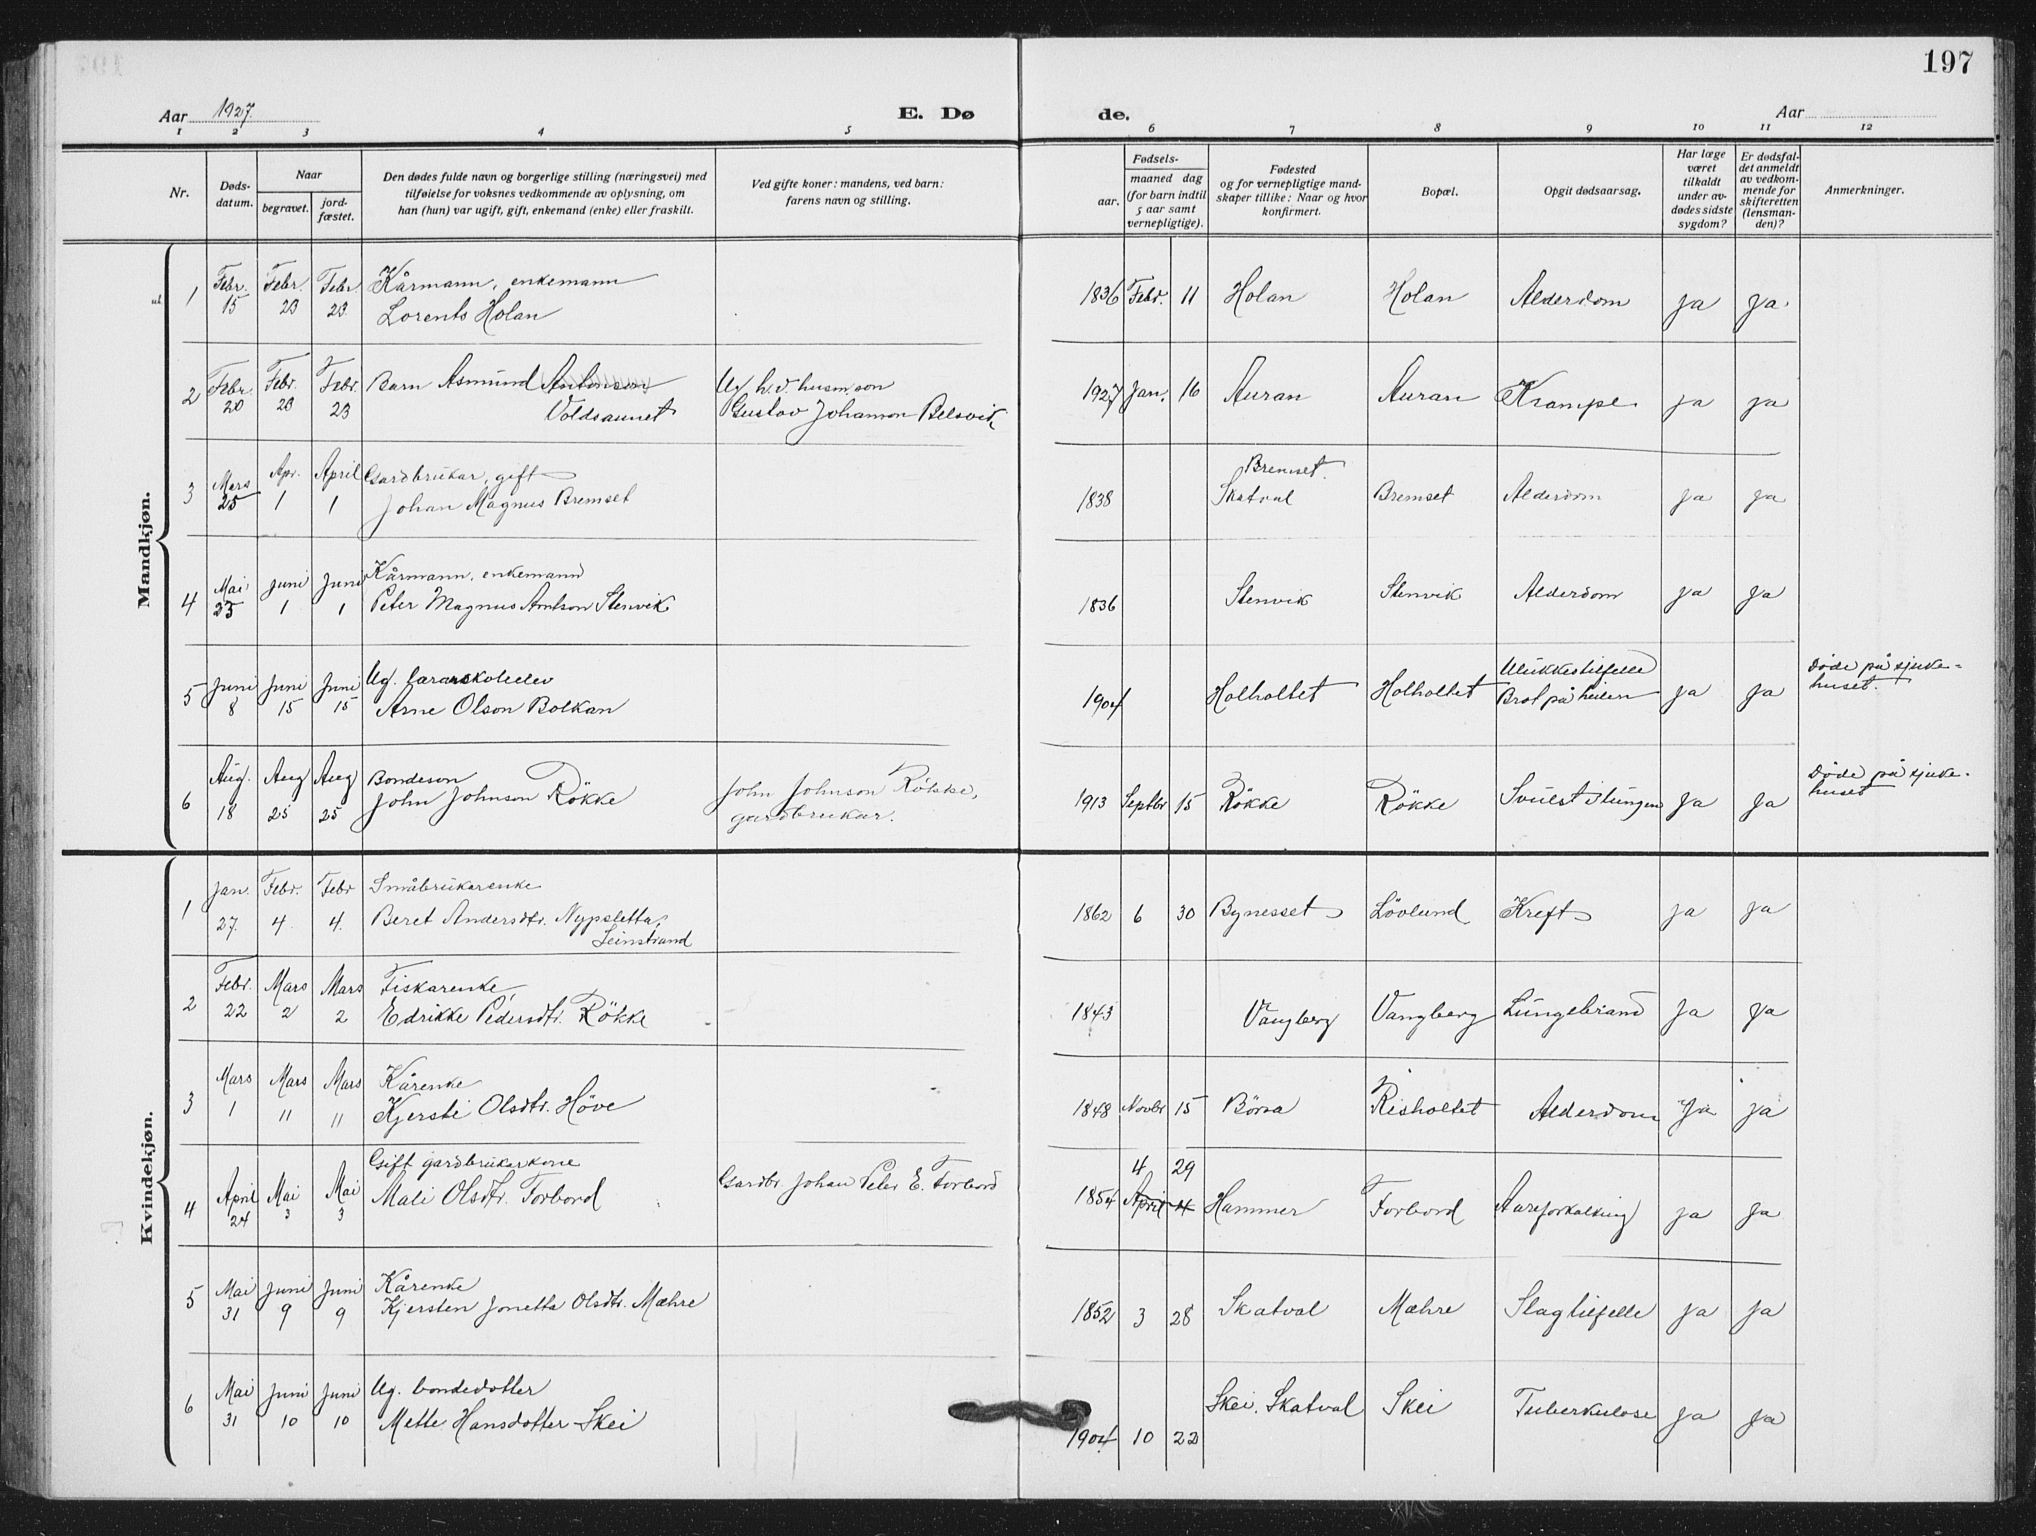 197
Aar 1927.
E. Døde.
Aar
1 2 3 4 5 6 7 8 9 10 11 12
Nr.
Døds-
datum.
Naar
begravet.
jord-
fæstet.
Den dødes fulde navn og borgerlige stilling (næringsvei) med
tilføielse for voksnes vedkommende av oplysning, om
han (hun) var ugift, gift, enkemand (enke) eller fraskilt.
Ved gifte koner: mandens, ved barn:
farens navn og stilling.
Fødsels-
aar.
maaned dag
(for barn indtil
5 aar samt
vernepligtige).
Fødested
og for vernepligtige mand-
skaper tillike: Naar og hvor
konfirmert.
Bopæl.
Opgit dødsaarsag.
Har læge
været
tilkaldt
under av-
dødes sidste
sygdom?
Er dødsfal-
det anmeldt
av vedkom-
mende for
skifteretten
(lensman-
den)?
Anmerkninger.
Mandkjøn.
1 Febr. 15 Febr. 23 Febr. 23 Kårmann, enkemann
Lorents Holan
1836 Febr. 11 Holan Holan Alderdom Ja Ja.
2 Febr. 20 Febr. 23 Febr. 23 Barn Asmund Antonson
Voldsaunet
Ug. h. v. husm.son
Gustav Johanson Belsvik
1927 Jan. 16 Auran Auran Krampe Ja Ja
3 Mars 25 Apr. 1 April 1 Gardbrukar, gift
Johan Magnus Bremset
1838 Bremset.
Skatval Bremset Alderdom Ja Ja
4 Mai 25 Juni 1 Juni 1 Kårmann, enkemann
Peter Magnus Arntson Stenvik
1836 Stenvik Stenvik Alderdom Ja Ja
5 Juni 8 Juni 15 Juni 15 Ug. lærarskoleelev
Arne Olson Bolkan
1904 Holholtet Holholtet Ulukkestilfelle
Brot på heilen Ja Ja Døde på sjuke-
huset.
6 Aug. 18 Aug 25 Aug 25 Bondeson
John Johnson Rökke
John Johnson Rökke,
gardbrukar.
1913 Septbr 15 Rökke Rökke Svulst i lungen Ja Ja Døde på sjuke-
huset
Kvindekjøn.
1 Jan. 27. Febr. 4. Febr 4. Småbrukarenke
Beret Andersdtr. Nypsletta,
Leinstrand
1862 6 30 Bynesset Lövlund Kreft Ja Ja
2 Febr. 22 Mars 2 Mars 2 Fiskarenke,
Edrikke Pedersdtr. Rökke
1843 Vangberg Vangberg Lungebrand Ja Ja
3 Mars 1 Mars 11 Mars 11 Kårenke
Kjersti Olsdtr. Höve
1848 Novbr 15 Börsa Risholtet Alderdom Ja Ja
4 April 24 Mai 3 Mai 3 Gift gardbrukarkone
Mali Olsdtr. Forbord
Gardbr Johan Peter E. Forbord
4 29
1854 April 4 Hammer Forbord Aareforkalking Ja Ja
5 Mai 31 Juni 9 Juni 9 Kårenke
Kjersten Jonetta Olsdtr. Mæhre
1852 3 28 Skatval Mæhre Slagtilfelle Ja Ja
6 Mai 31 Juni 10 Juni 10 Ug. bondedotter
Mette Hansdotter Skei
1904 10 22 Skei, Skatval Skei Tuberkulose Ja Ja